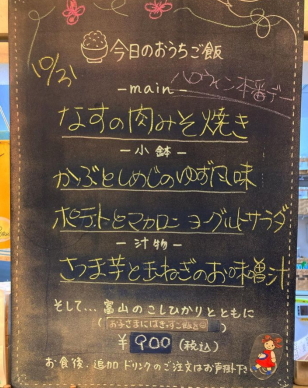 今日のおうちご飯
10/31
ハロウィン本番デー
—main—
なすの肉みそ焼き
—小鉢—
かぶとしめじのゆず風味
ポテトとマカロニ ヨーグルトサラダ
—汁物—
さつま芋と玉ねぎのお味噌汁
そして…富山のこしひかりとともに
(お子さまにはきっずご飯も)
¥900(税込)
お食後、追加ドリンクのご注文はお声掛け下さい